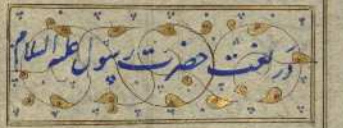 در نعت حضرت رسول علیه السلام